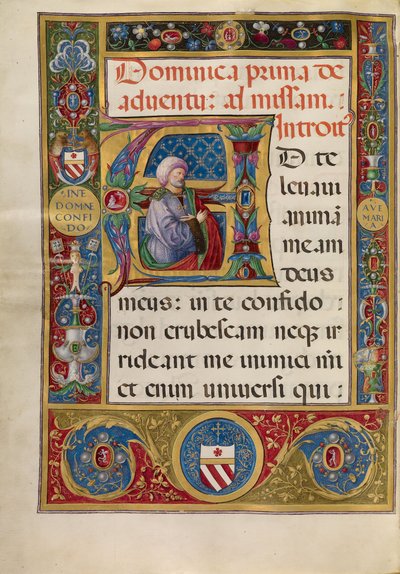 Dominica prima de
adventu: ad missam.
Introit⁹
AD te
levavi
animā
meam
deus
meus: in te confido
non erubescam neqꝫ ir
rideant me inimici mī
et enim universi qui:
IN TE
DOMNE
CONFI
DO
AVE
MARI
A